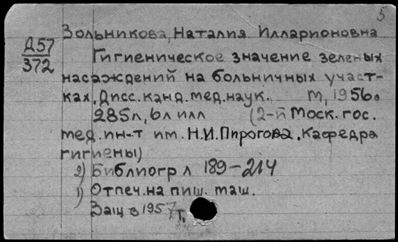 5
Зольникова, Наталия Илларионовна
Д57
372
Гигиеническое значение зеленых
насаждений на больничных участ-
ках. Дисс. канд. мед. наук. М, 1956.
285л, 6л илл (2-й Моск. гос.
мед. ин-т им. Н.И. Пирогова. Кафедра
гигиены)
2) Библиогр л 189-214
1) Отпеч. на пиш. маш.
Защ в 1957 г.